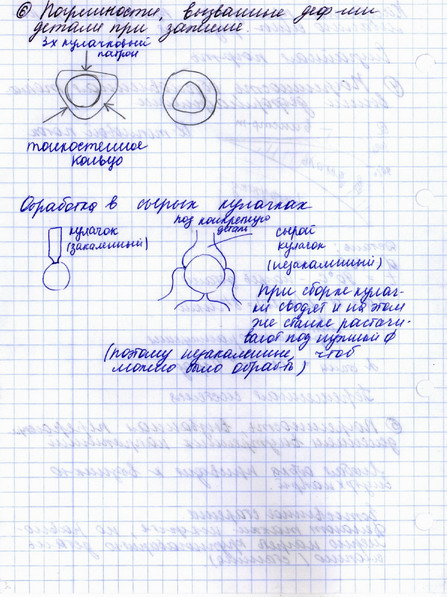 ⑥ Погрешности, вызванные деф-ми
детали при зажиме.
3х кулачковый
патрон
тонкостенное
кольцо
Обработка в сырых кулачках
кулачок
(закаленный)
под конкретную
деталь
сырой
кулачок
(незакаленный)
При сборке кулач-
ки сводят и на этом
же станке растачи-
вают под нужный ф
(поэтому незакаленные, чтоб
можно было обраб-ть)